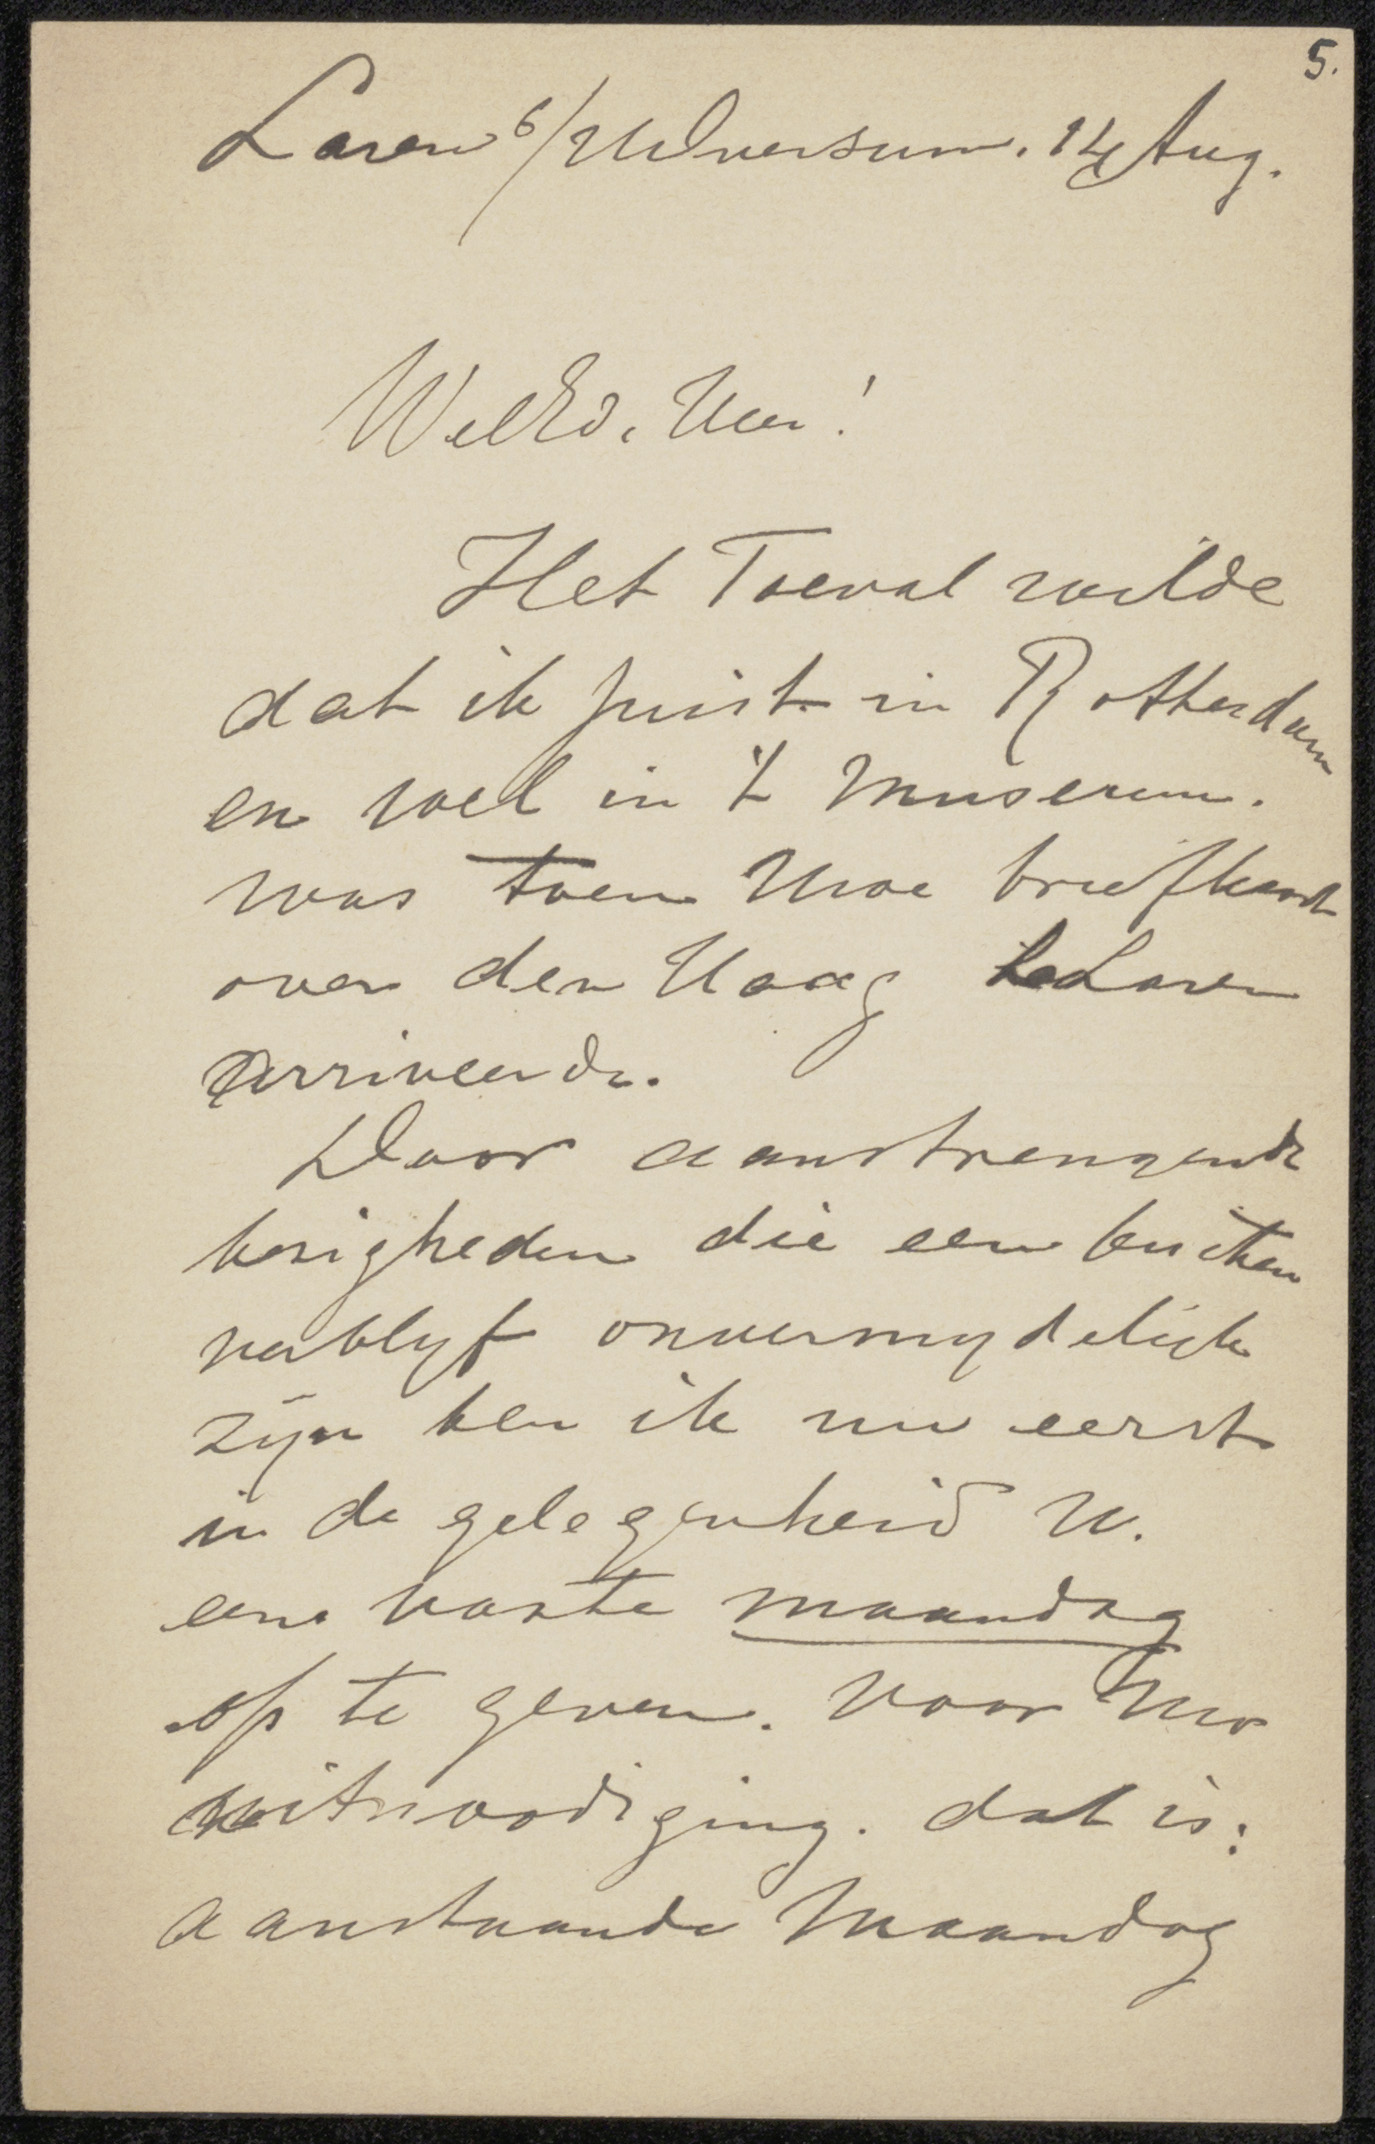 5.
Laren b/Hilversum. 14 Aug.
WelEd. Heer!
Het Toeval wilde
dat ik juist in Rotterdam
en wel in 't Museum.
was toen Uwe briefkaart
over den Haag te Laren
arriveerde.
Door aanstrengende
bezigheden die een buiten
verblyf onvermydelijk
zijn ben ik nu eerst
in de gelegenheid U.
een vaste maandag
op te geven. voor Uw
uitnoodiging. dat is:
aanstaande Maandag